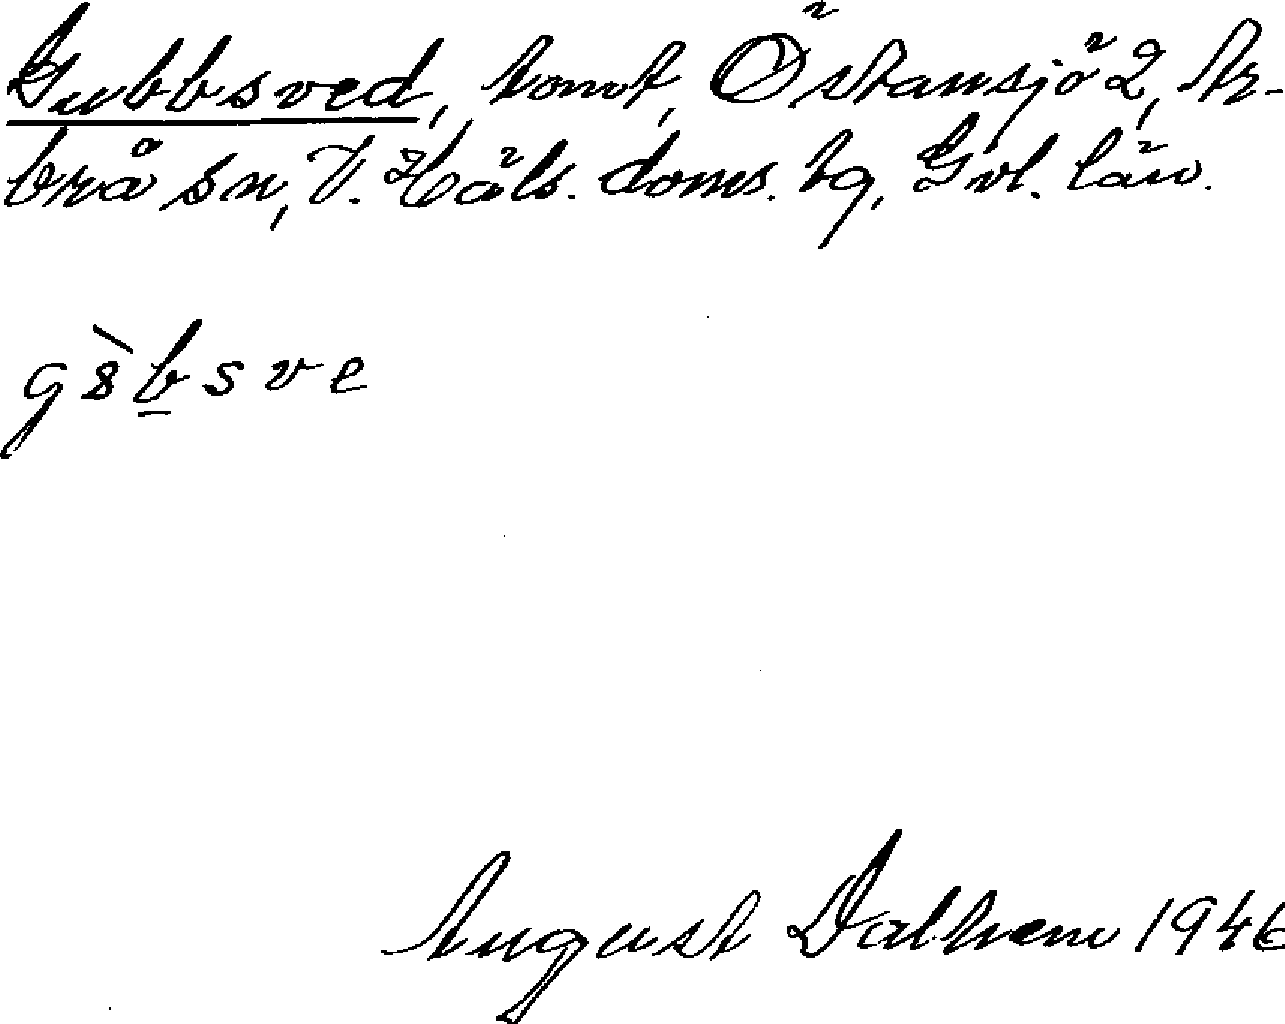 Gubbsved, tomt, Östansjö 2, Ar-
brå sn, V. Häls. doms. tg, Gvl. län.
g8̀b̲sve
August Dalhem 1946